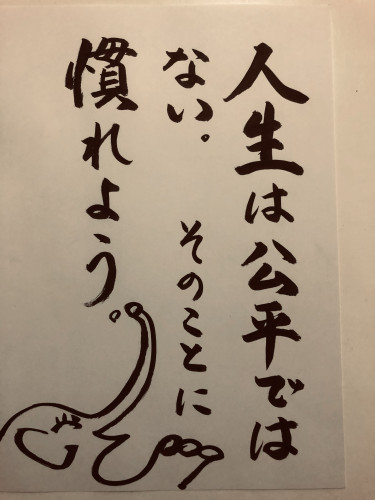 人生は公平では
ない。そのことに
慣れよう。